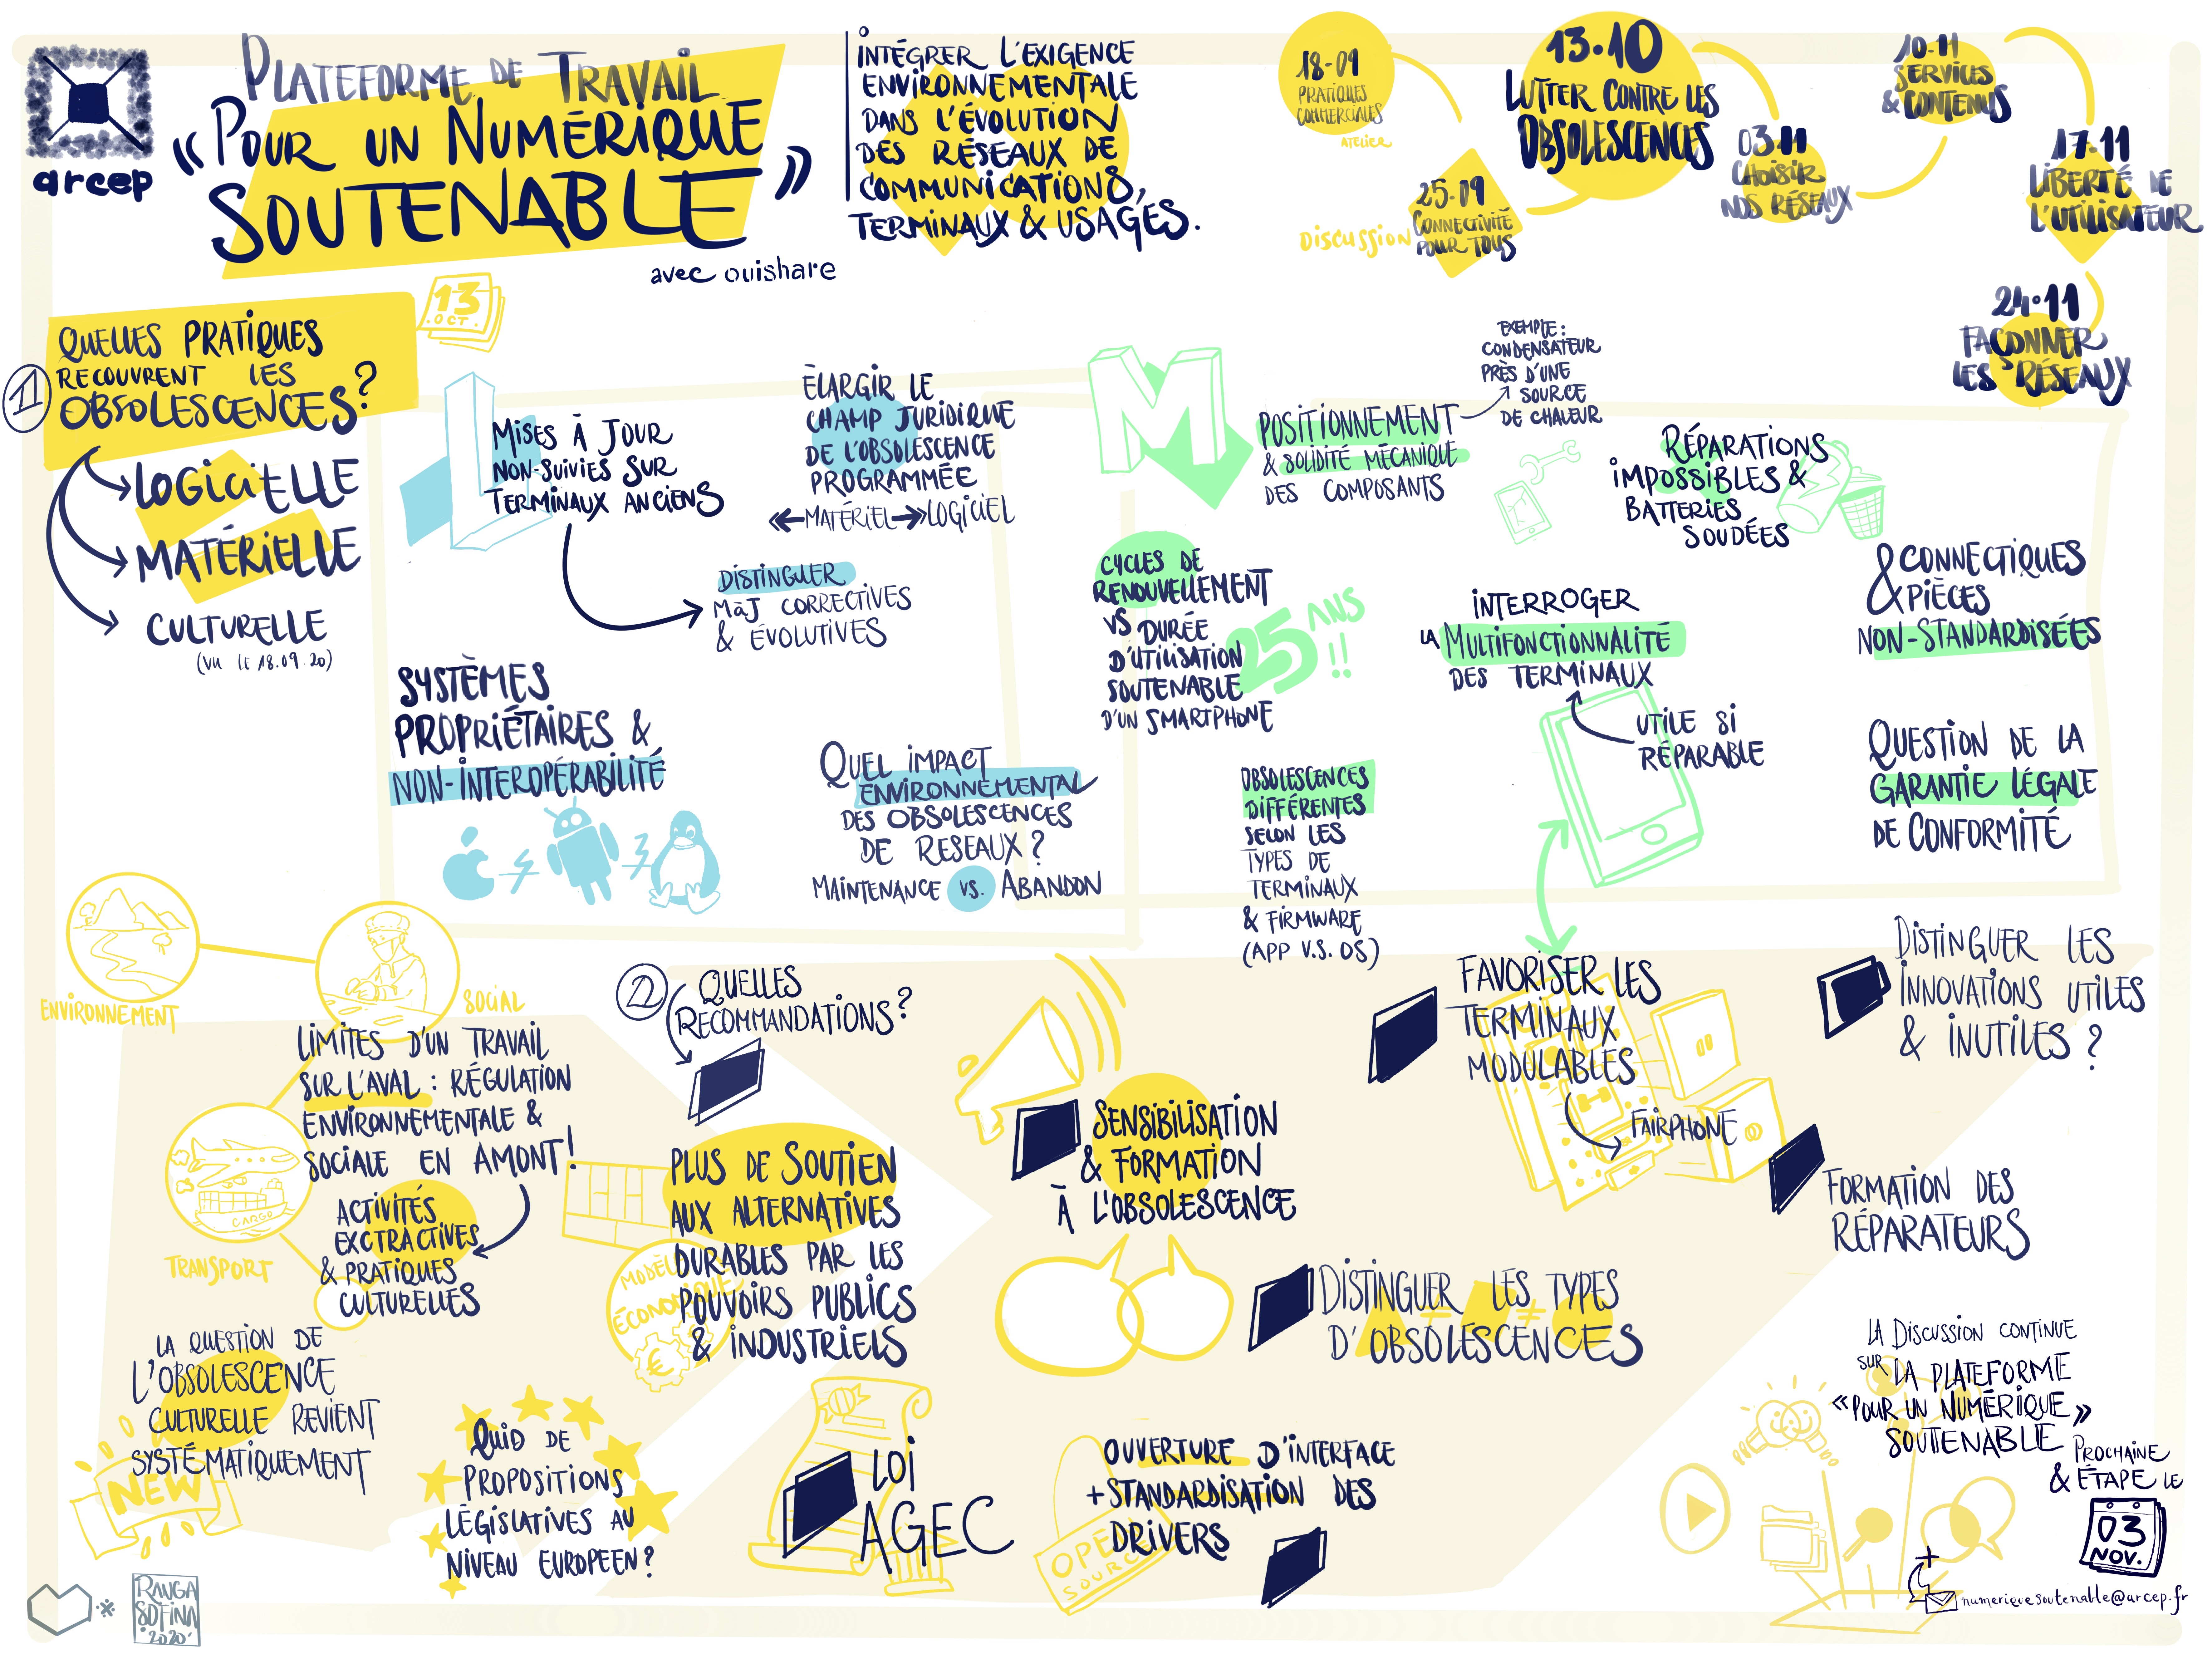 arcep
PLATEFORME DE TRAVAIL
« POUR UN NUMÉRIQUE
SOUTENABLE »
avec ouishare
INTÉGRER L'EXIGENCE
ENVIRONNEMENTALE
DANS L'ÉVOLUTION
DES RÉSEAUX DE
COMMUNICATIONS,
TERMINAUX & USAGES.
18-09
PRATIQUES
COMMERCIALES
ATELIER
DISCUSSION
25.09
CONNECTIVITÉ
POUR TOUS
13.10
LUTTER CONTRE LES
OBSOLESCENCES
03.11
CHOISIR
NOS RÉSEAUX
10-11
SERVICES
& CONTENUS
17.11
LIBERTÉ DE
L'UTILISATEUR
24.11
FAÇONNER
LES RÉSEAUX
13
OCT.
1
QUELLES PRATIQUES
RECOUVRENT LES
OBSOLESCENCES?
LOGICIELLE
MATÉRIELLE
CULTURELLE
(VU LE 18.09.20)
L
MISES À JOUR
NON-SUIVIES SUR
TERMINAUX ANCIENS
ÉLARGIR LE
CHAMP JURIDIQUE
DE L'OBSOLESCENCE
PROGRAMMÉE
MATÉRIEL LOGICIEL
DISTINGUER
MÀJ CORRECTIVES
& ÉVOLUTIVES
SYSTÈMES
PROPRIÉTAIRES &
NON-INTEROPÉRABILITÉ
QUEL IMPACT
ENVIRONNEMENTAL
DES OBSOLESCENCES
DE RESEAUX?
MAINTENANCE VS. ABANDON
M
POSITIONNEMENT
& SOLIDITÉ MÉCANIQUE
DES COMPOSANTS
EXEMPLE:
CONDENSATEUR
PRÈS D'UNE
SOURCE
DE CHALEUR
RÉPARATIONS
IMPOSSIBLES &
BATTERIES
SOUDÉES
& CONNECTIQUES
PIÈCES
NON-STANDARDISÉES
CYCLES DE
RENOUVELLEMENT
VS DURÉE
D'UTILISATION
SOUTENABLE
D'UN SMARTPHONE
25 ANS
!!
INTERROGER
LA MULTIFONCTIONNALITÉ
DES TERMINAUX
UTILE SI
RÉPARABLE
QUESTION DE LA
GARANTIE LÉGALE
DE CONFORMITÉ
OBSOLESCENCES
DIFFÉRENTES
SELON LES
TYPES DE
TERMINAUX
& FIRMWARE
(APP V.S. OS)
ENVIRONNEMENT
SOCIAL
TRANSPORT
CARGO
LIMITES D'UN TRAVAIL
SUR L'AVAL : RÉGULATION
ENVIRONNEMENTALE &
SOCIALE EN AMONT!
ACTIVITÉS
EXCTRACTIVES
& PRATIQUES
CULTURELLES
LA QUESTION DE
L'OBSOLESCENCE
CULTURELLE REVIENT
SYSTÉMATIQUEMENT
NEW
2
QUELLES
RECOMMANDATIONS?
PLUS DE SOUTIEN
AUX ALTERNATIVES
DURABLES PAR LES
POUVOIRS PUBLICS
& INDUSTRIELS
MODÈLE
ÉCONOMIQUE
€
QUID DE
PROPOSITIONS
LÉGISLATIVES AU
NIVEAU EUROPEEN?
SENSIBILISATION
& FORMATION
À L'OBSOLESCENCE
FAVORISER LES
TERMINAUX
MODULABLES
FAIRPHONE
DISTINGUER LES
INNOVATIONS UTILES
& INUTILES ?
FORMATION DES
RÉPARATEURS
DISTINGUER LES TYPES
≠ ≠
D'OBSOLESCENCES
LOI
AGEC
OUVERTURE D'INTERFACE
+ STANDARDISATION DES
DRIVERS
OPEN
SOURCE
LA DISCUSSION CONTINUE
SUR LA PLATEFORME
« POUR UN NUMÉRIQUE »
SOUTENABLE
& PROCHAINE
ÉTAPE LE
03
NOV.
+
numeriquesoutenable@arcep.fr
RANGA
SOFINA
2020